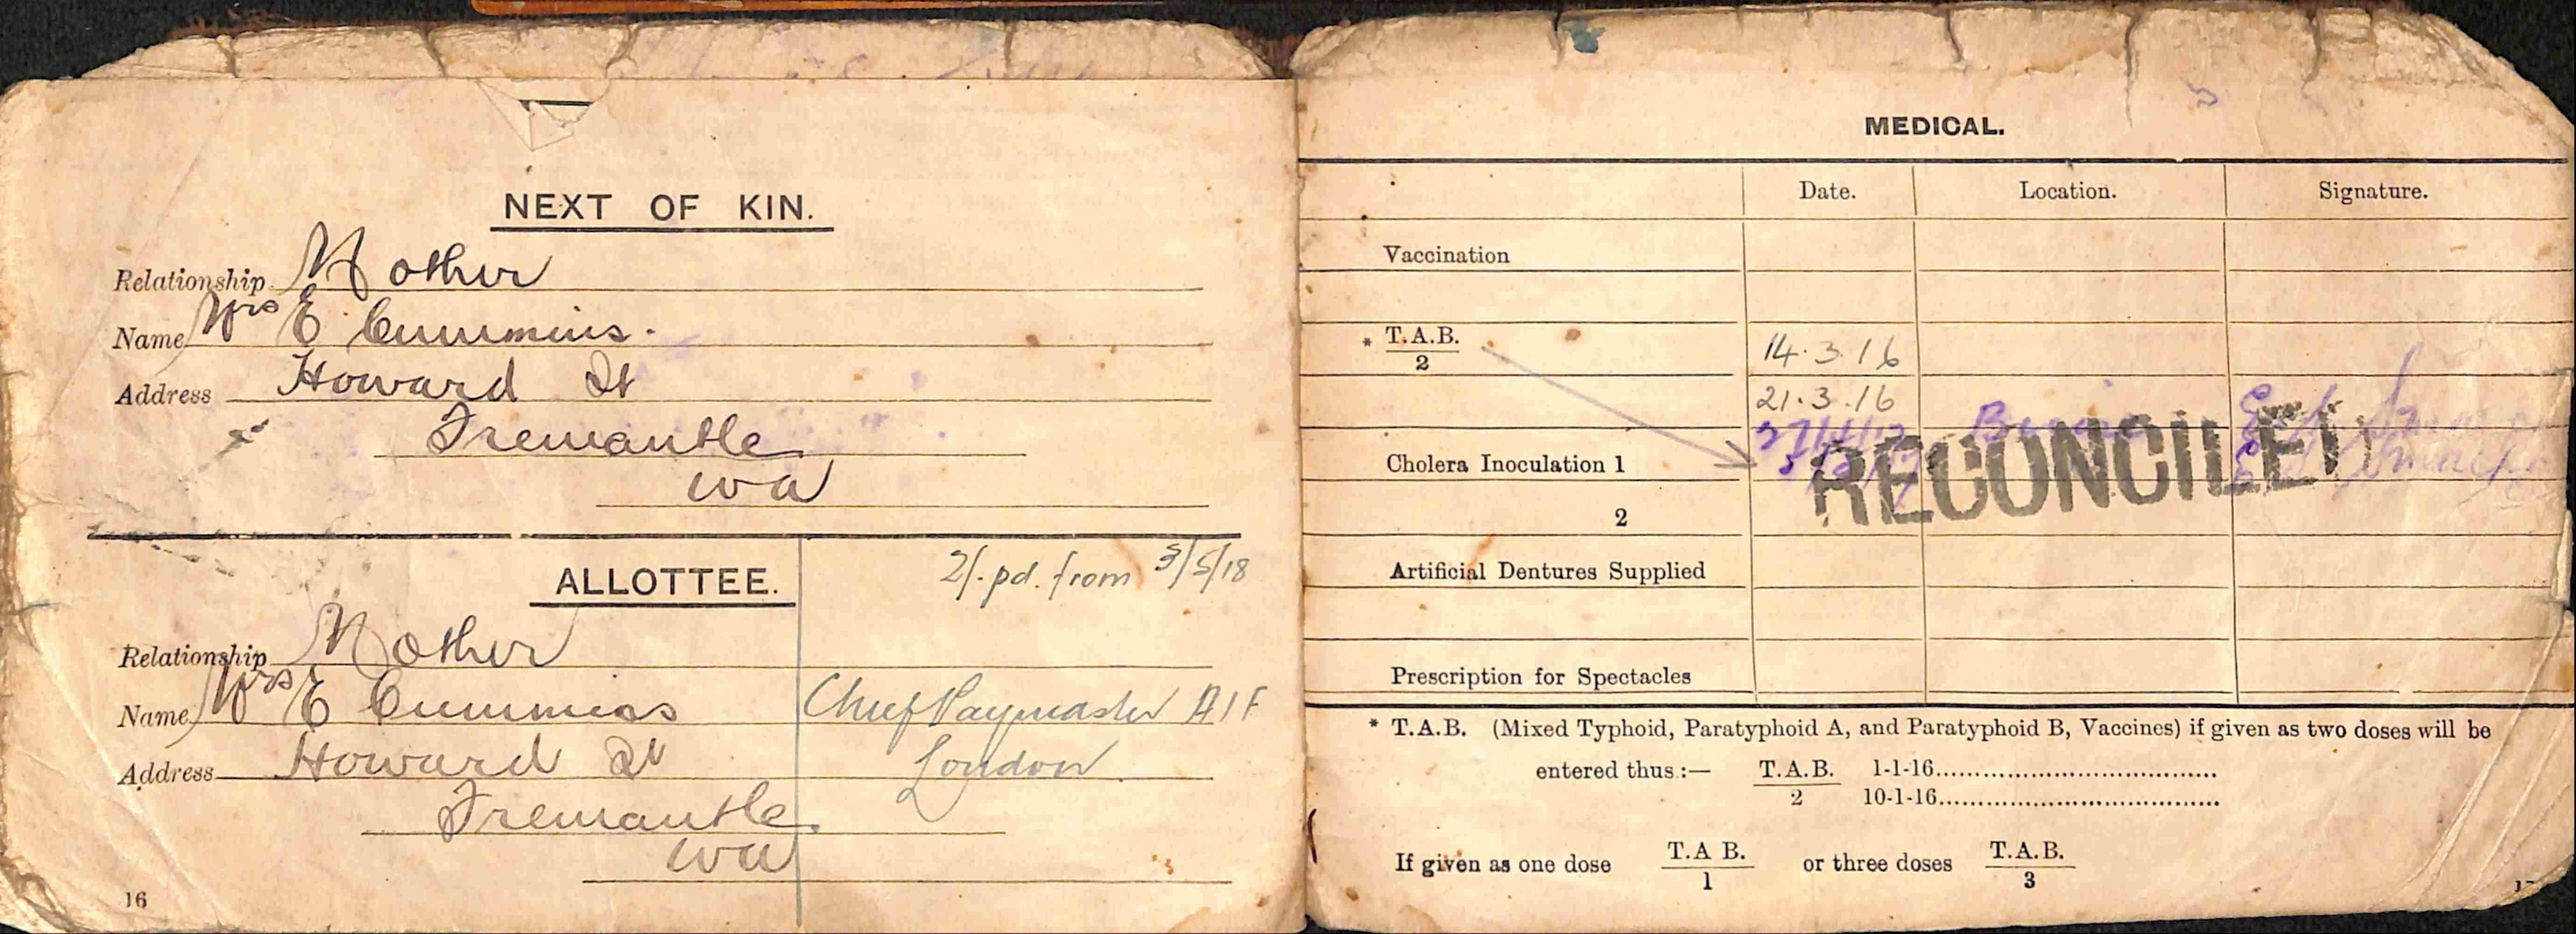 NEXT OF KIN.
Relationship Mother
Name Mrs E Cummins.
Address Howard St
Fremantle
WA
ALLOTTEE.
2/. pd. from 3/5/18
Relationship Mother
Name Mrs E Cummins
Chief Paymaster AIF
Address Howard St
London.
Fremantle.
WA
16
MEDICAL.
Date. Location. Signature.
Vaccination
* T.A.B.
2
14.3.16
21.3.16
Cholera Inoculation 1
RECONCILED
2
Artificial Dentures Supplied
Prescription for Spectacles
* T.A.B. (Mixed Typhoid, Paratyphoid A, and Paratyphoid B, Vaccines) if given as two doses will be
entered thus :— T.A.B. 1-1-16
2 10-1-16
If given as one dose T.A B. or three doses T.A.B.
1 3